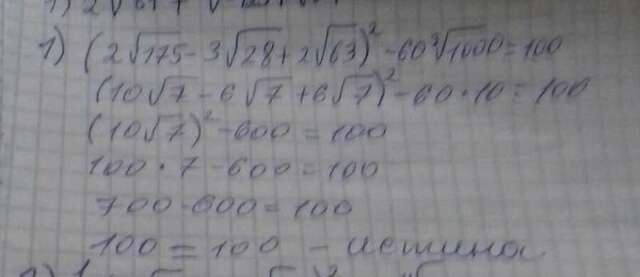 1) (2√175 - 3√28 + 2√63)² - 60∛1000 = 100
(10√7 - 6√7 + 6√7)² - 60·10 = 100
(10√7)² - 600 = 100
100·7 - 600 = 100
700 - 600 = 100
100 = 100 - истина